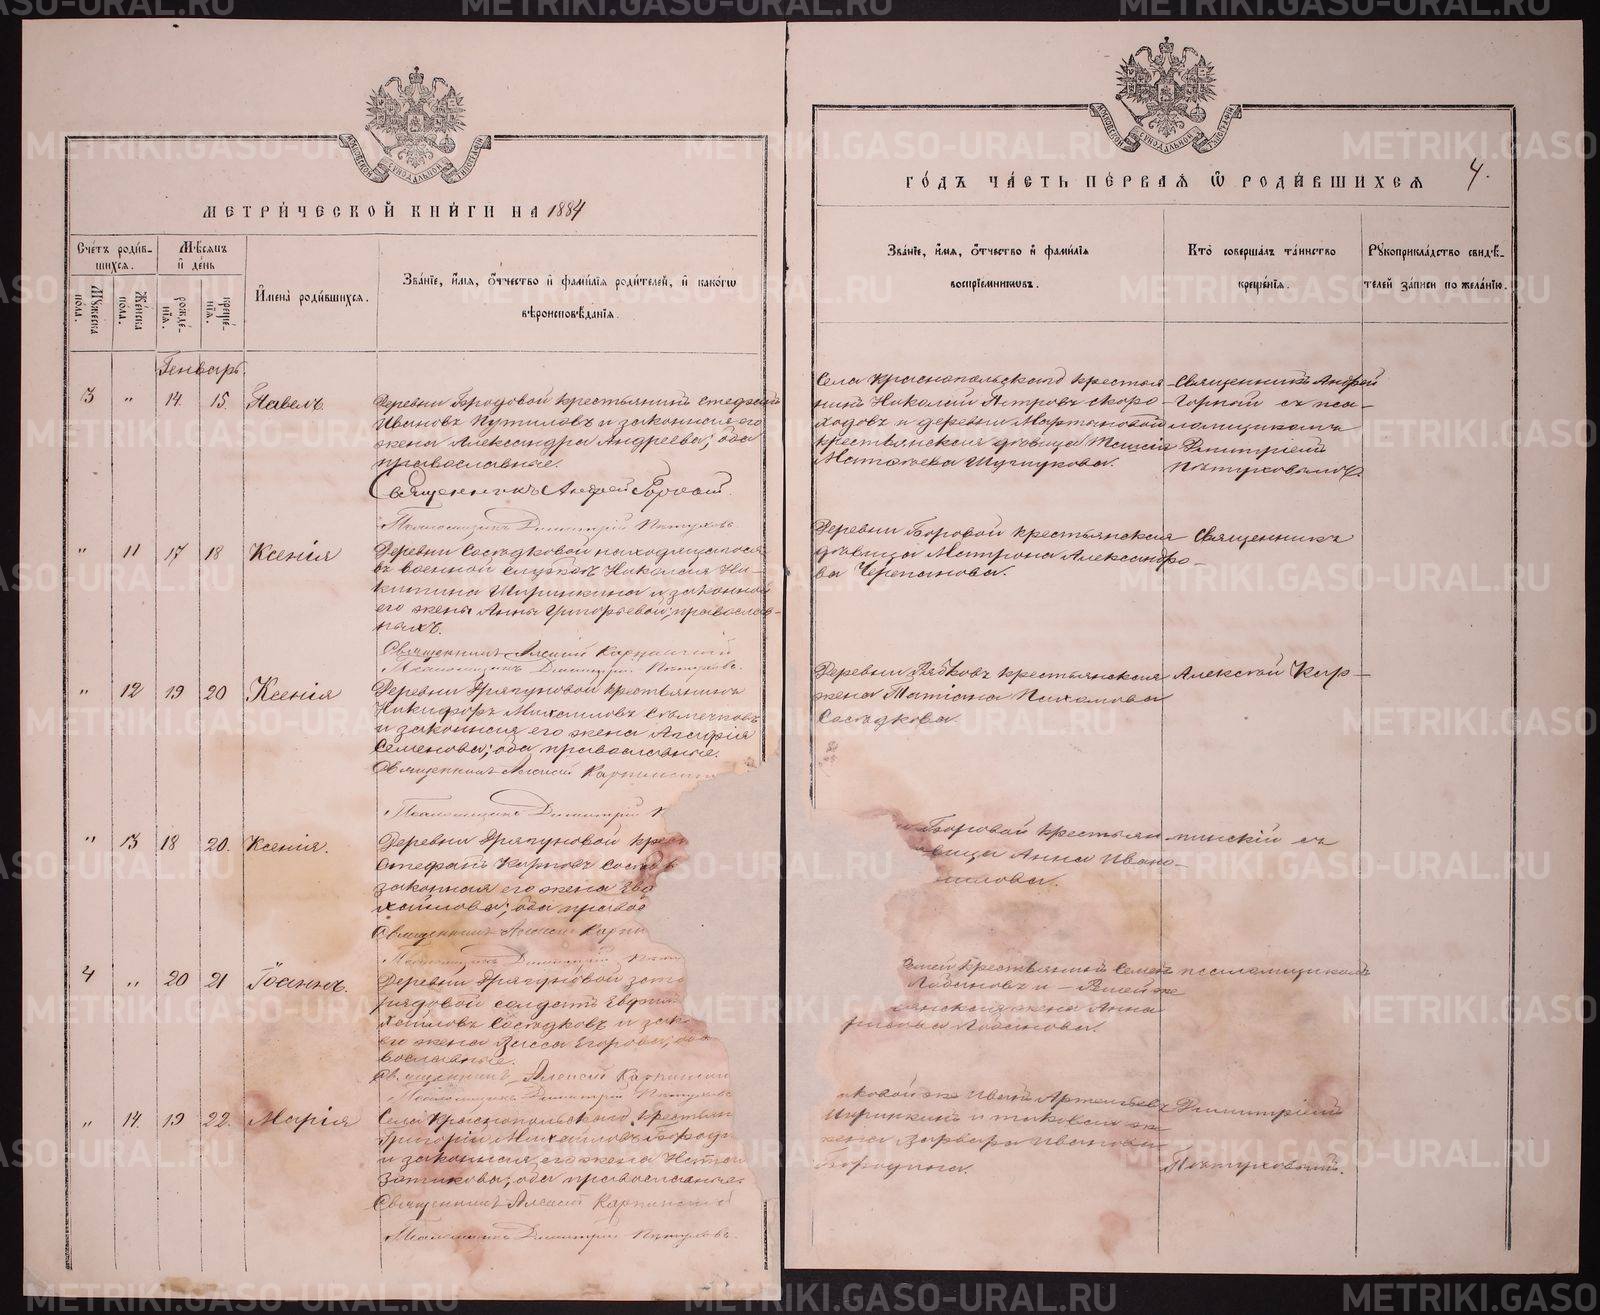 МЕТРИ́ЧЕСКОЙ КНИ́ГИ НА 1884
Счéтъ роди́в-
шихся.
Мѣсяцъ
и̂ дéнь
Мꙋжеска
пóла.
Жéнска
пóла.
рождé-
нїѧ.
крещé-
нїѧ.
И̂менà роди́вшихся.
Звáнїе, и̂́мя, ѻ̂́тчество и̂ фами́лїя роди́телей, и̂ какóгѡ
вѣроисповѣ́данїя.
Генварь
3 " 14. 15. Павелъ.
Деревни Бродовой крестьянинъ Стефанъ
Ивановъ Путиловъ и законная его
жена Александра Андреева; оба
православные.
Священникъ Андрей Горный.
Псаломщикъ Димитрій Пѣтуховъ
" 11 17 18 Ксенія
Деревни Сосѣдковой находящагося
въ военной службѣ Николая Ни-
китина Ширинкина и законной
его жены Анны Григорьевой; православ-
ныхъ.
Священникъ Алексій Карпинскій
Псаломщикъ Димитрій Пѣтуховъ.
" 12 19 20 Ксенія
Деревни Дрягуновой крестьянинъ
Никифоръ Михаиловъ Семячковъ
и законная его жена Агафія
Семенова; оба православные.
Священникъ Алексій Карпинскі
Псаломщикъ Димитрій
" 13 18 20. Ксенія.
Деревни Дрягуновой крес
Стефанъ Карповъ Сосѣд
законная его жена Ев
хайлова; оба правос
Священникъ Алексій Карпи
Псаломщикъ Димитрій Пѣт
4 " 20 21 Іоаннъ.
Деревни Дрягуновой
рядовой солдатъ Ефим
хайловъ Сосѣдковъ и зак
его жена Васса Егорова; оба
вославные.
Священникъ Алексій Карпински
Псаломщикъ Димитрій Пѣтуховъ
" 14. 19 22. Марія
Села Краснопольскаго крестьян
Григорій Михаиловъ Бород
и законная его жена Ната
Зотикова; оба православные.
Священникъ Алексій Карпинскій
Псаломщикъ Димитрій Пѣтуховъ.
ГО́ДЪ ЧА́СТЬ ПЕ́РВАЯ Ѽ РОДИ́ВШИХСЯ 4.
Звáнїе, и̂́мя, ѻ̂́тчество и̂ фами́лїя
воспрїéмникѡвъ.
Ктò совершáлъ тáинство
крещéнїя.
Рꙋкоприклáдство свидѣ́-
телей зáписи по желáнїю.
Села Краснопольскаго крестья-
нинъ Николай Петровъ Скоро-
ходовъ и деревни Мартьяновой
крестьянская дѣвица Таисія
Матѳеева Шутукова.
Священникъ Андрей
Горный съ пса-
ломщикомъ
Димитріемъ
Пѣтуховымъ.
Деревни Боровой крестьянская
дѣвица Матрона Александро-
ва Черепанова.
Священникъ
Деревни Рябковъ крестьянская
жена Татіана Пахомова
Сосѣдкова.
Алексѣй Кар-
Боровой крестьян
вица Анна Ивано-
пинскій съ
крестьянинъ Семенъ
Лобановъ и
жена Анна
Лобанова.
псаломщикомъ
ковой же Иванъ Артемьевъ
Ширинкинъ и таковая же
жена Варвара Иванова
Бородина.
Димитріемъ
Пѣтуховымъ.
METRIKI.GASO-URAL.RU